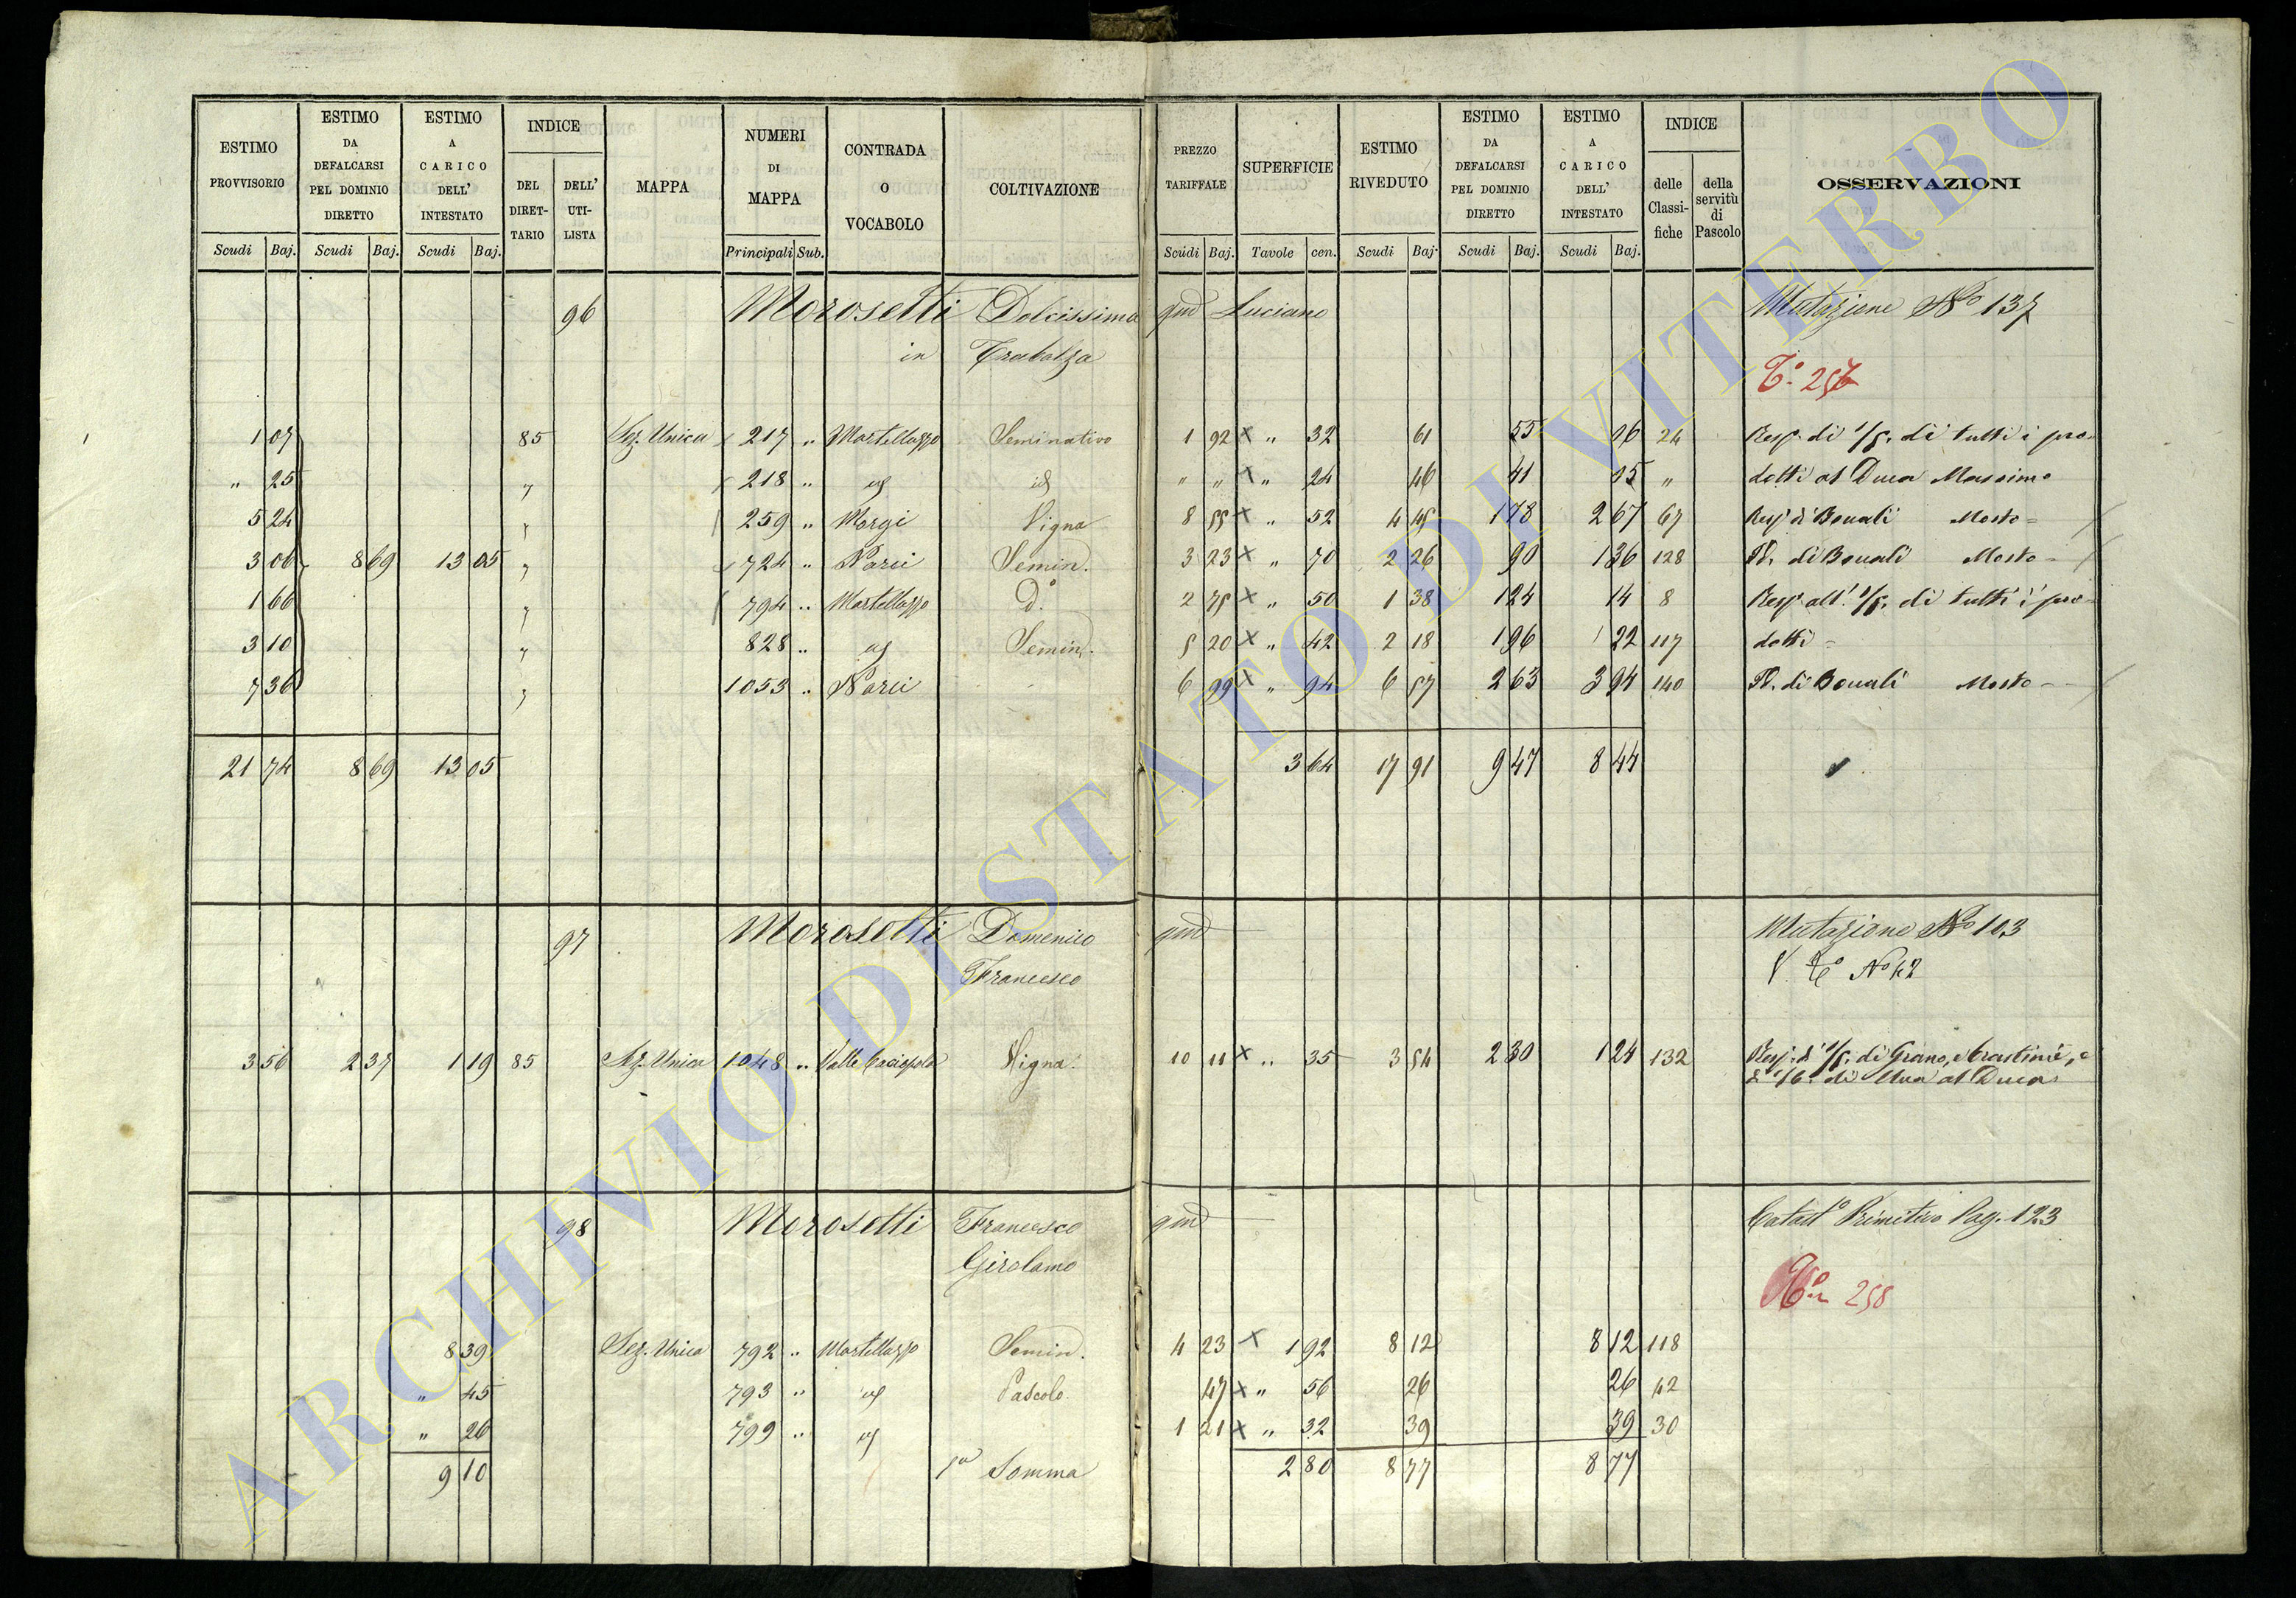 ESTIMO PROVVISORIO Scudi Baj. ESTIMO DA DEFALCARSI PEL DOMINIO DIRETTO Scudi Baj. ESTIMO A CARICO DELL' INTESTATO Scudi Baj. INDICE DEL DIRETTARIO DELL' UTILISTA MAPPA NUMERI DI MAPPA Principali Sub. CONTRADA O VOCABOLO COLTIVAZIONE PREZZO TARIFFALE Scudi Baj. SUPERFICIE Tavole cen. ESTIMO RIVEDUTO Scudi Baj. ESTIMO DA DEFALCARSI PEL DOMINIO DIRETTO Scudi Baj. ESTIMO A CARICO DELL' INTESTATO Scudi Baj. INDICE delle Classifiche della servitù di Pascolo OSSERVAZIONI
96 Morosetti Dolcissima qud Luciano Mutazione No 137
in Trabalza
To 257
1 07 85 Sez. Unica x 217 " Martellazzo Seminativo 1 92 x " 32 61 55 06 24 Resp. di 1/5. di tutti i pro-
" 25 " x 218 " id id " " x " 24 46 41 05 " dotti al Duca Massimo
5 24 " 259 " Morgi Vigna 8 55 x " 52 4 45 1 78 2 67 67 Resp di Bocali Mosto =
3 06 8 69 13 05 " x 724 " Narci Semin. 3 23 x " 70 2 26 90 1 36 128 Id. di Bocali Mosto -
1 66 " 794 " Martellazzo Do. 2 75 x " 50 1 38 1 24 14 8 Resp. all' 1/5. di tutti i pro-
3 10 " 828 " id Semin. 5 20 x " 42 2 18 1 96 22 117 dotti =
7 36 " 1053 " Narci - 6 99 x " 94 6 57 2 63 3 94 140 Id. di Bocali Mosto - -
21 74 8 69 13 05 3 64 17 91 9 47 8 44
97 Morosetti Domenico qud Mutazione No 103
Francesco V. To No 42
3 56 2 37 1 19 85 Sez. Unica 1048 " Valle Vigna. 10 11 x " 35 3 54 2 30 1 24 132 Resp. di 1/5. di Grano, e
di Uva al Duca
98 Morosetti Francesco qud Catasto Primitivo Pag. 123
Girolamo
To 258
8 39 Sez. Unica 792 " Martellazzo Semin. 4 23 x 1 92 8 12 8 12 118
" 45 793 " id Pascolo. 47 x " 56 26 26 42
" 26 799 " id 1 21 x " 32 39 39 30
9 10 Somma 2 80 8 77 8 77
ARCHIVIO DI STATO DI VITERBO